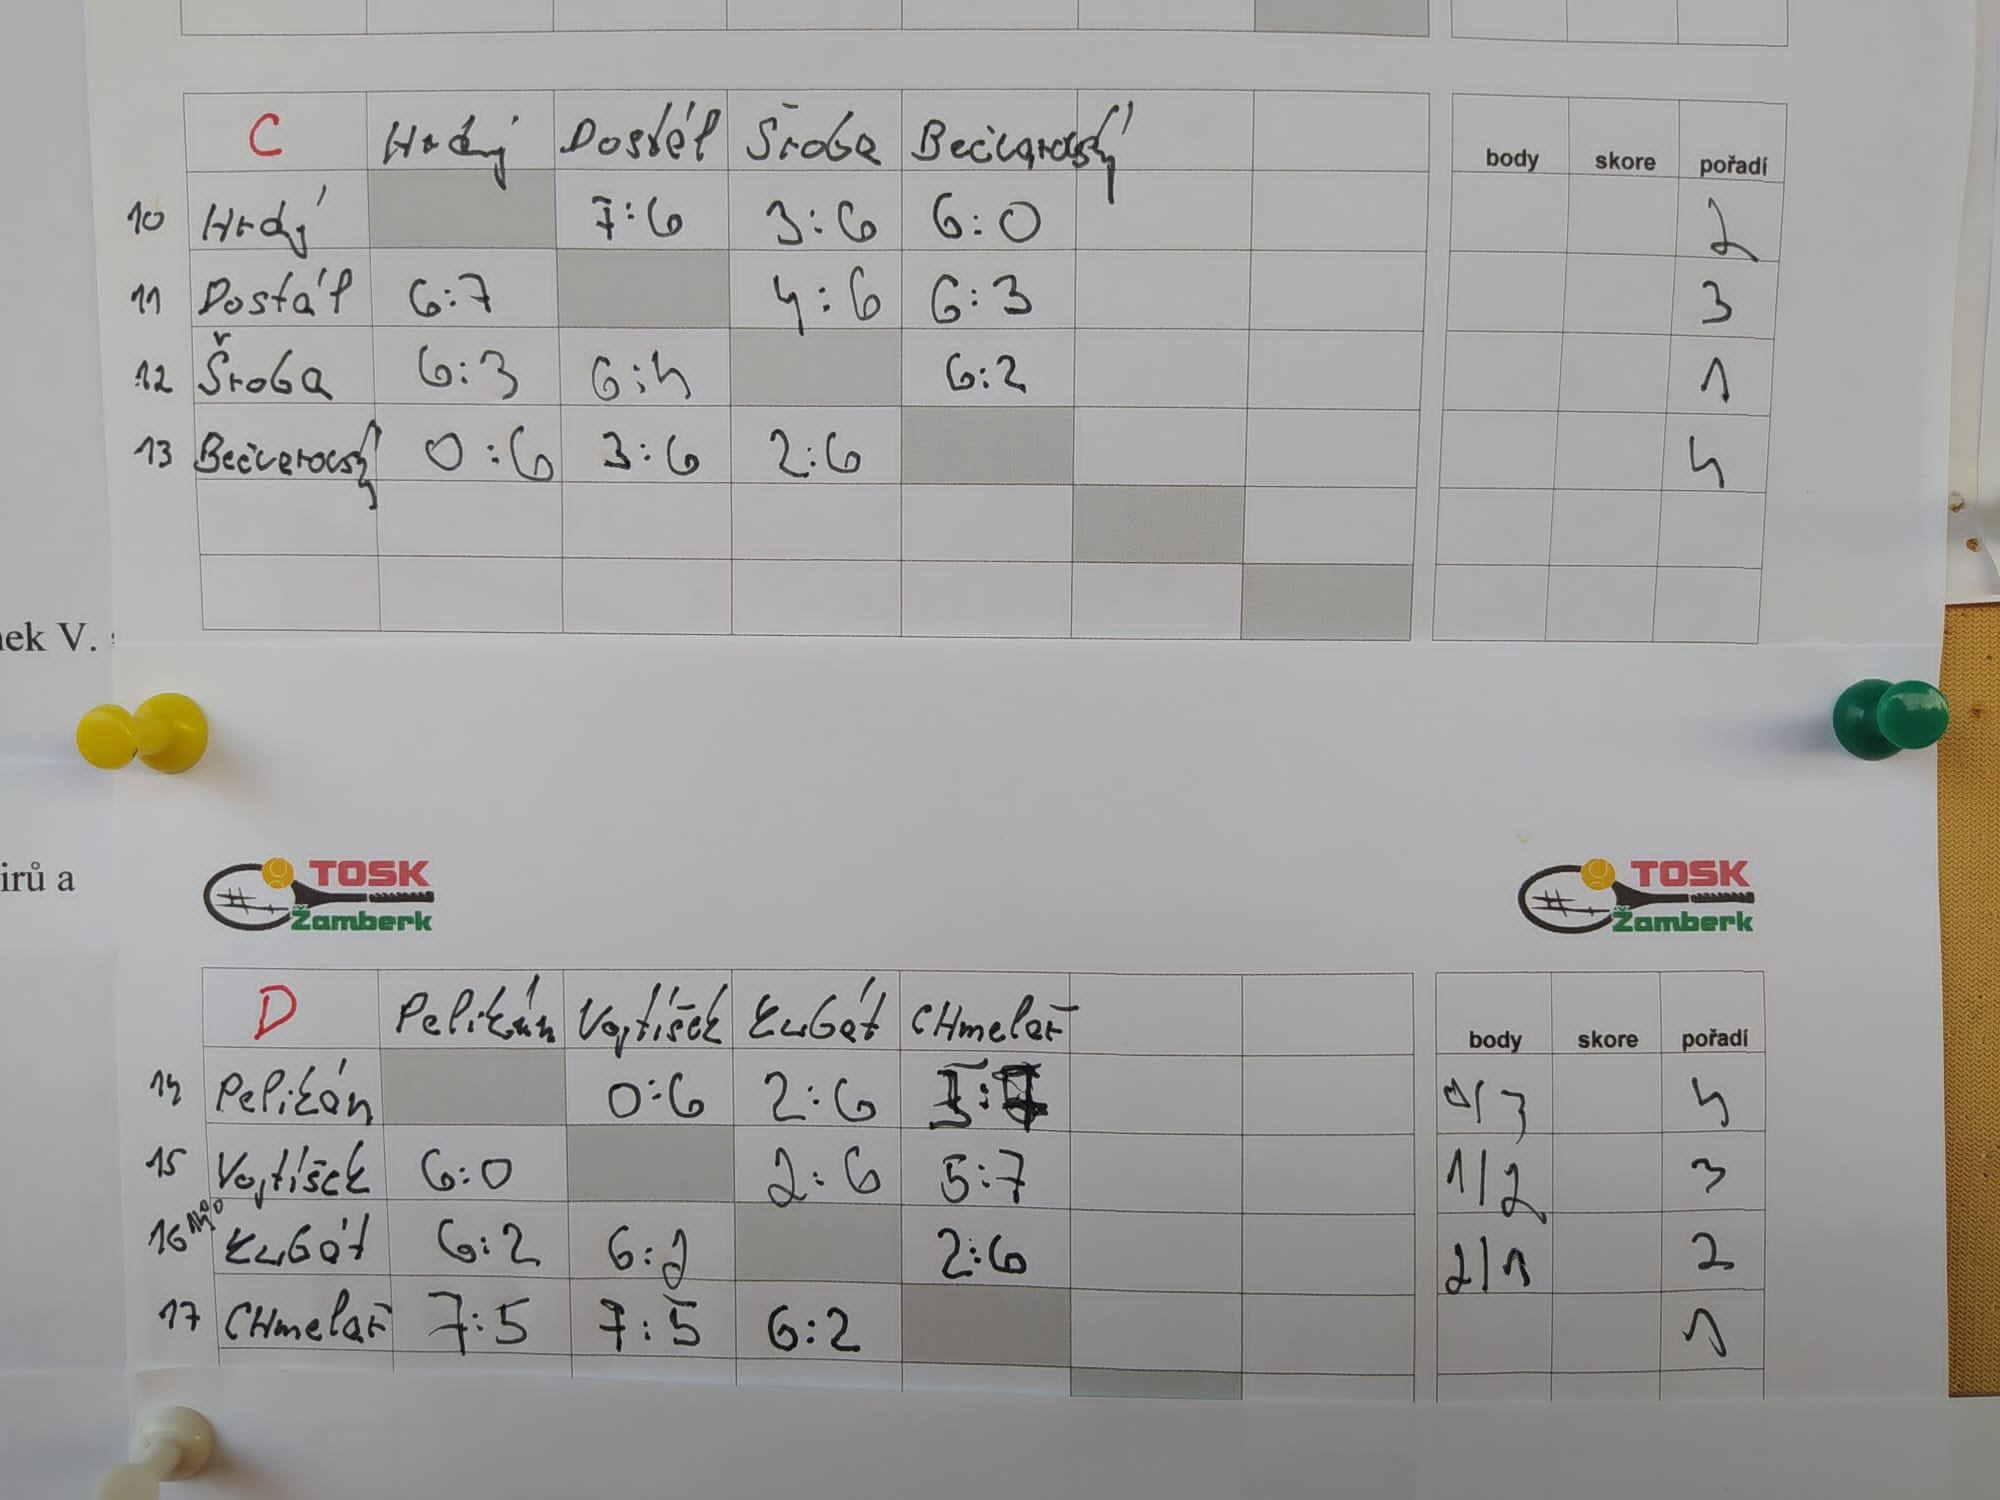 C Hrdý Dostál Šroba Bečvarovský
body skore pořadí
10 Hrdý 7:6 3:6 6:0 2
11 Dostál 6:7 4:6 6:3 3
12 Šroba 6:3 6:4 6:2 1
13 Bečvarovský 0:6 3:6 2:6 4
nek V.
irů a
TOSK Žamberk
TOSK Žamberk
D Pelikán Vojtíšek Kubát CHmelař
body skore pořadí
14 Pelikán 0:6 2:6 5:7 0/3 4
15 Vojtíšek 6:0 2:6 5:7 1/2 3
16 Kubát 6:2 6:2 2:6 2/1 2
17 CHmelař 7:5 7:5 6:2 1